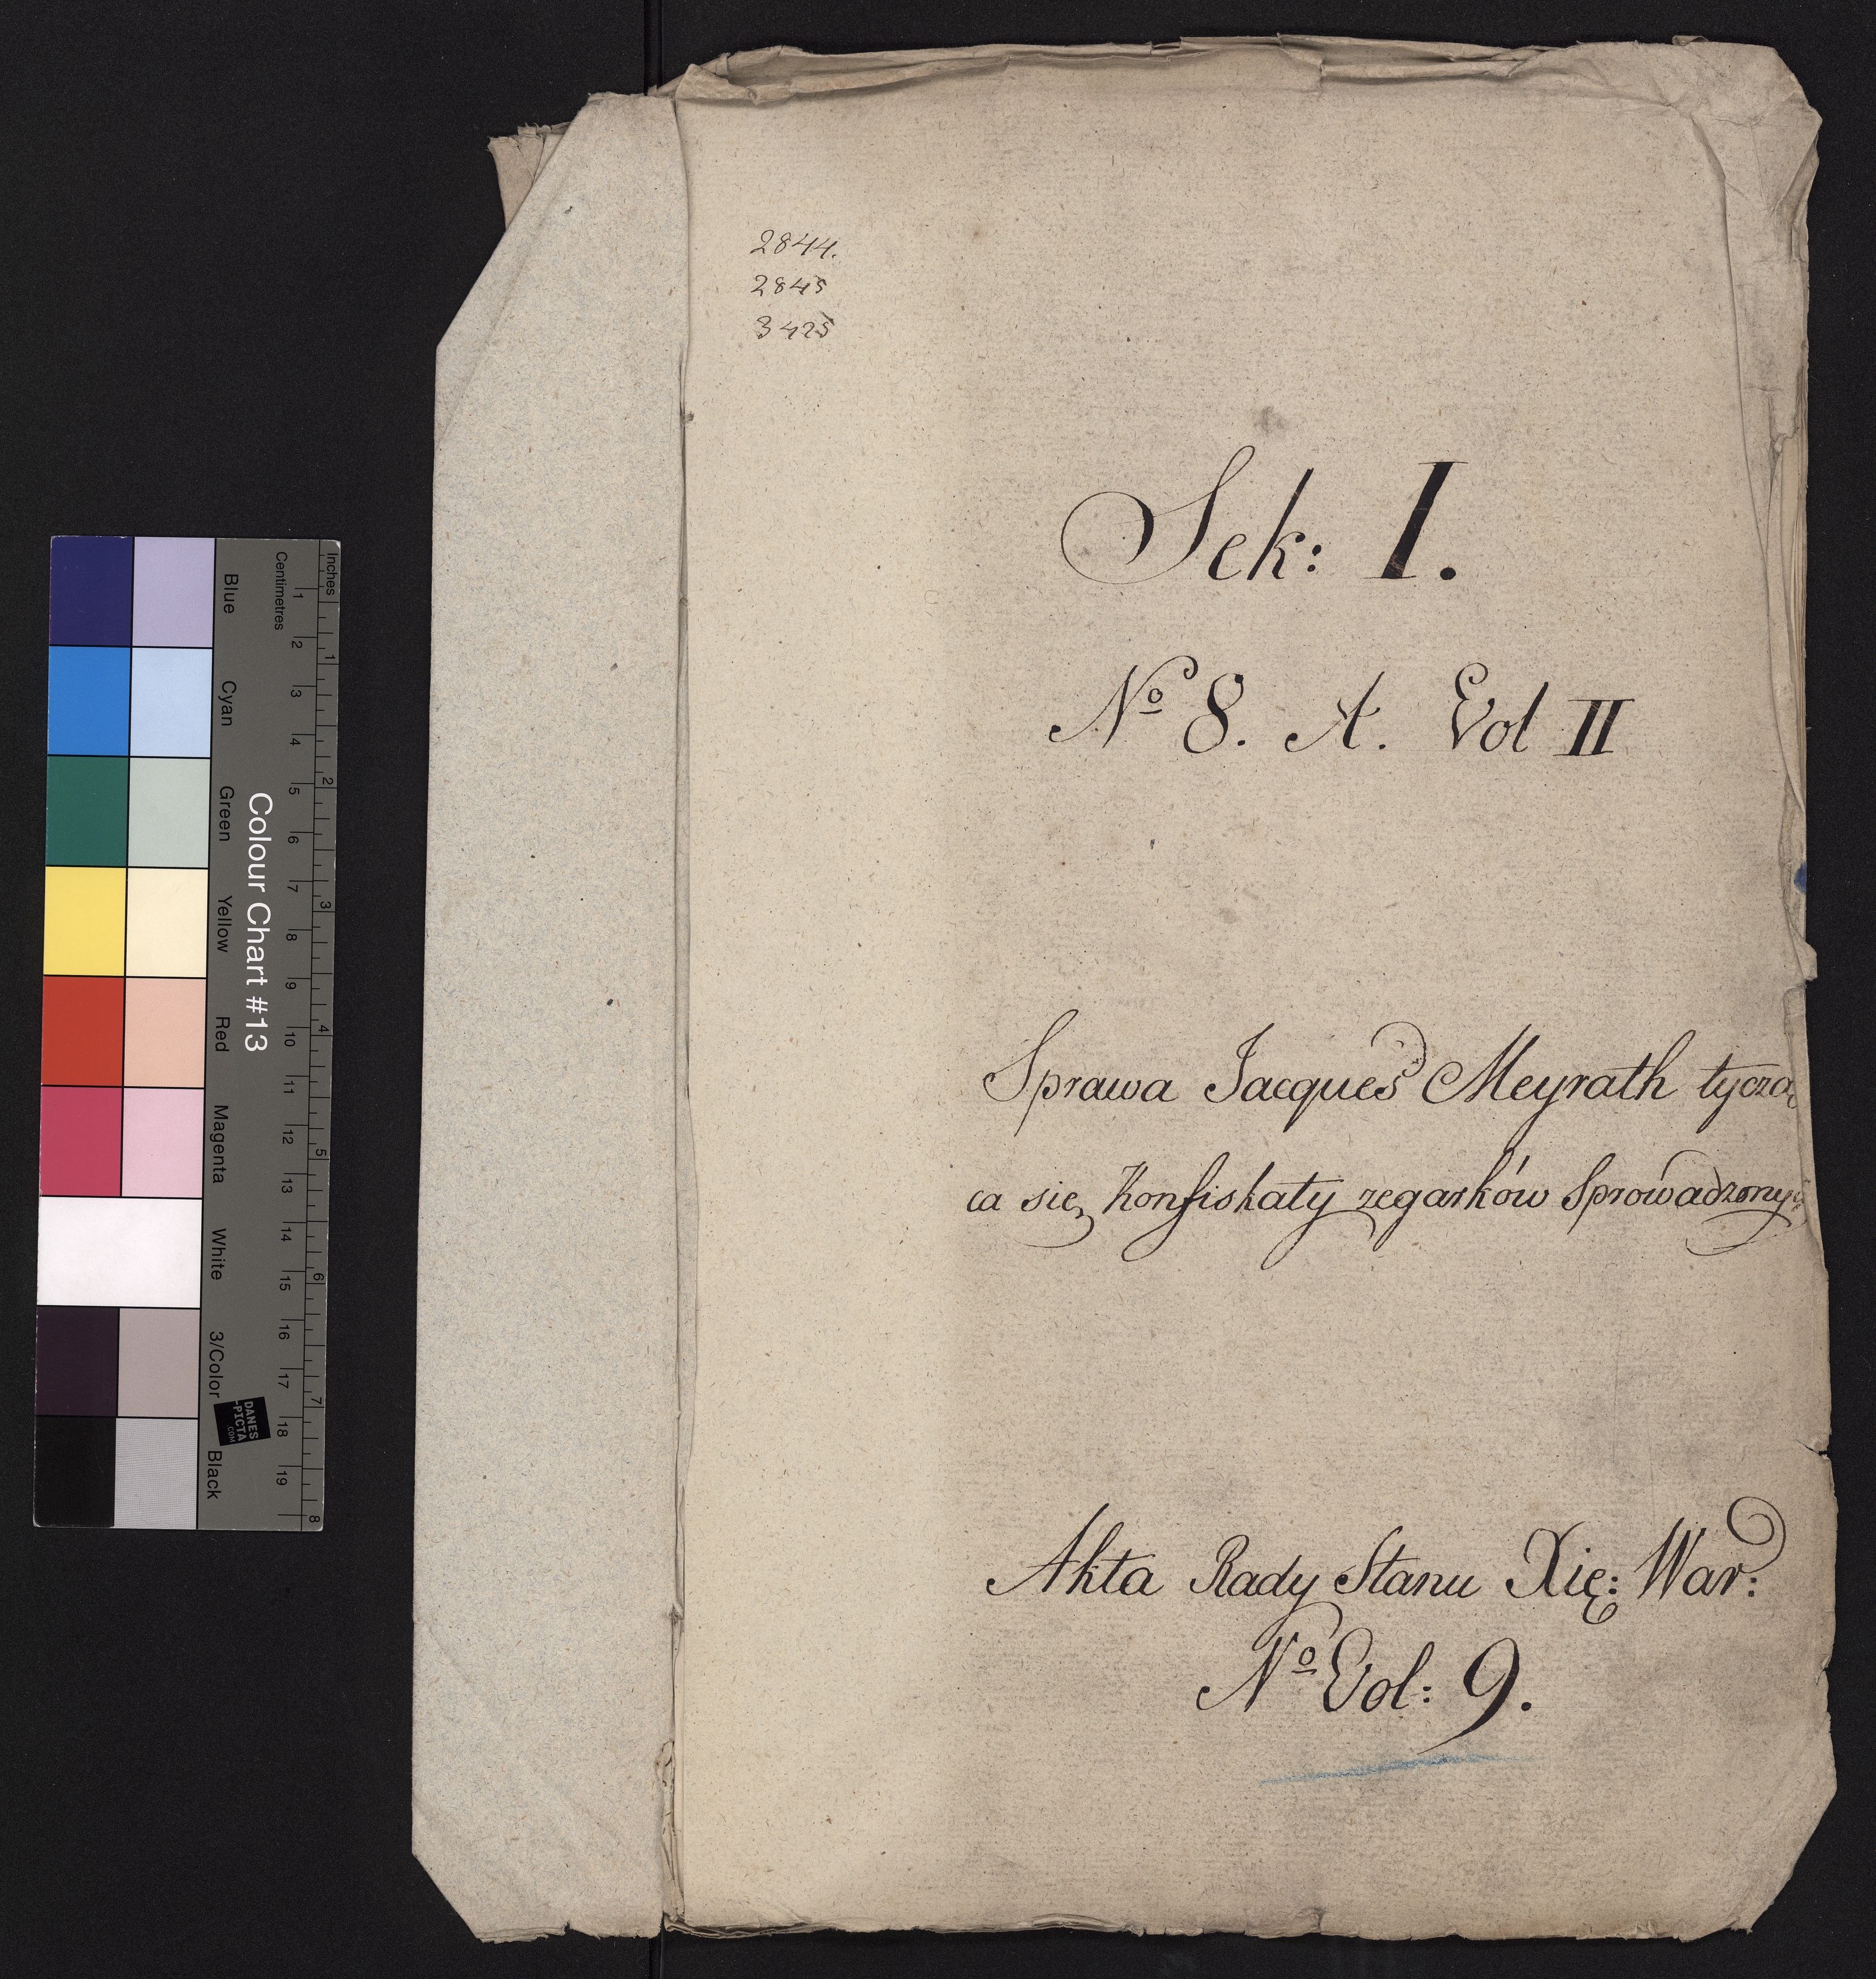 2844.
2845
3425
Sek: I.
No 8. A. Vol II
Sprawa Jacques Meyrath tycząca
ca się Konfiskaty zegarków Sprowadzonych
Akta Rady Stanu Xię: War:
No Vol: 9.
Colour Chart #13
Blue
Cyan
Green
Yellow
Red
Magenta
White
3/Color
Black
Centimetres
1 2 3 4 5 6 7 8 9 10 11 12 13 14 15 16 17 18 19
Inches
1 2 3 4 5 6 7 8
DANES
-PICTA
.COM